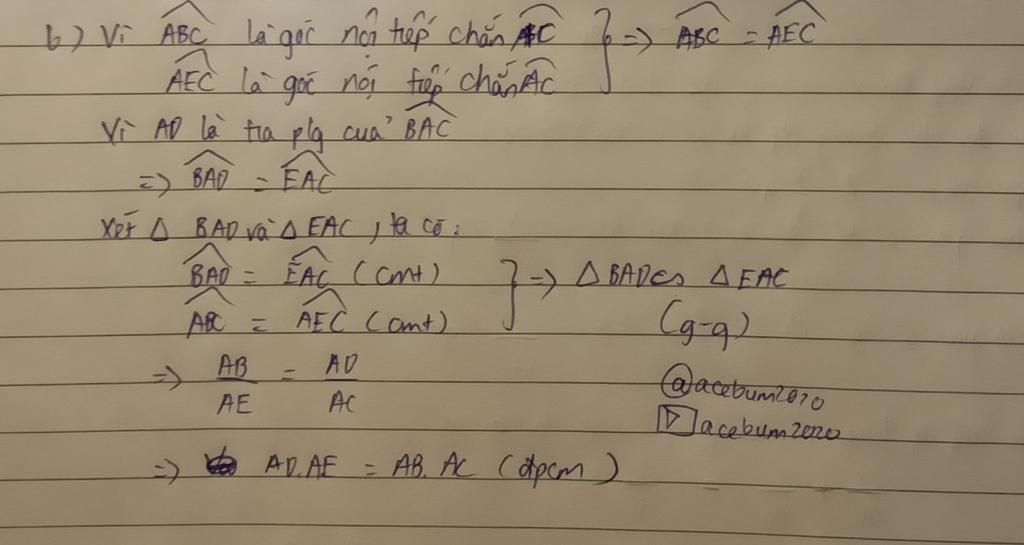 b) Vì ABC là góc nội tiếp chắn AC } => ABC = AEC
AEC là góc nội tiếp chắn AC
Vì AD là tia p/g của BAC
=> BAD = EAC
Xét Δ BAD và Δ EAC, ta có:
BAD = EAC (cmt) } => Δ BAD ∽ Δ EAC
ABC = AEC (cmt) (g-g)
=> AB/AE = AD/AC
@acebum2020
acebum2020
=> AD.AE = AB.AC (đpcm)